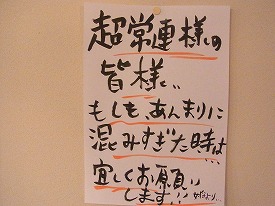 超常連様の
皆様…
もしも、あんまりに
混みすぎた時は…
宜しくお願い
します!!